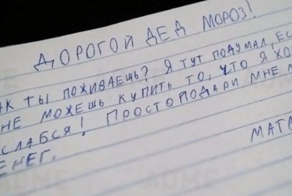 ДОРОГОЙ ДЕД МОРОЗ!
АК ТЫ ПОЖИВАЕШЬ? Я ТУТ ПОДУМАЛ, ЕС
НЕ МОЖЕШЬ КУПИТЬ ТО, ЧТО Я ХО
СЛАБСЯ! ПРОСТО ПОДАРИ МНЕ М
ЕНЕГ.
МАТ